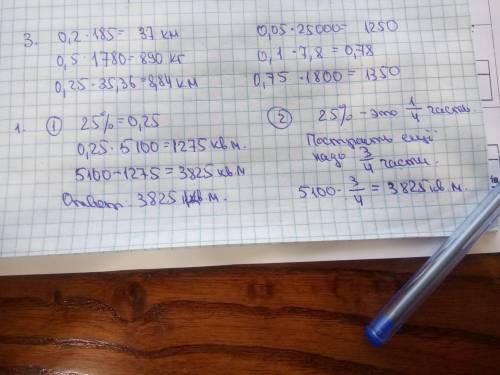 3. 0,2 · 185 = 37 км
0,5 · 1780 = 890 кг
0,25 · 35,36 = 8,84 км
0,05 · 25000 = 1250
0,1 · 7,8 = 0,78
0,75 · 1800 = 1350
1. ① 25% = 0,25
0,25 · 5100 = 1275 кв м.
5100 - 1275 = 3825 кв. м
Ответ: 3825 кв. м.
② 25% - это 1/4 часть.
Построить ещё
надо 3/4 части.
5100 · 3/4 = 3825 кв. м.